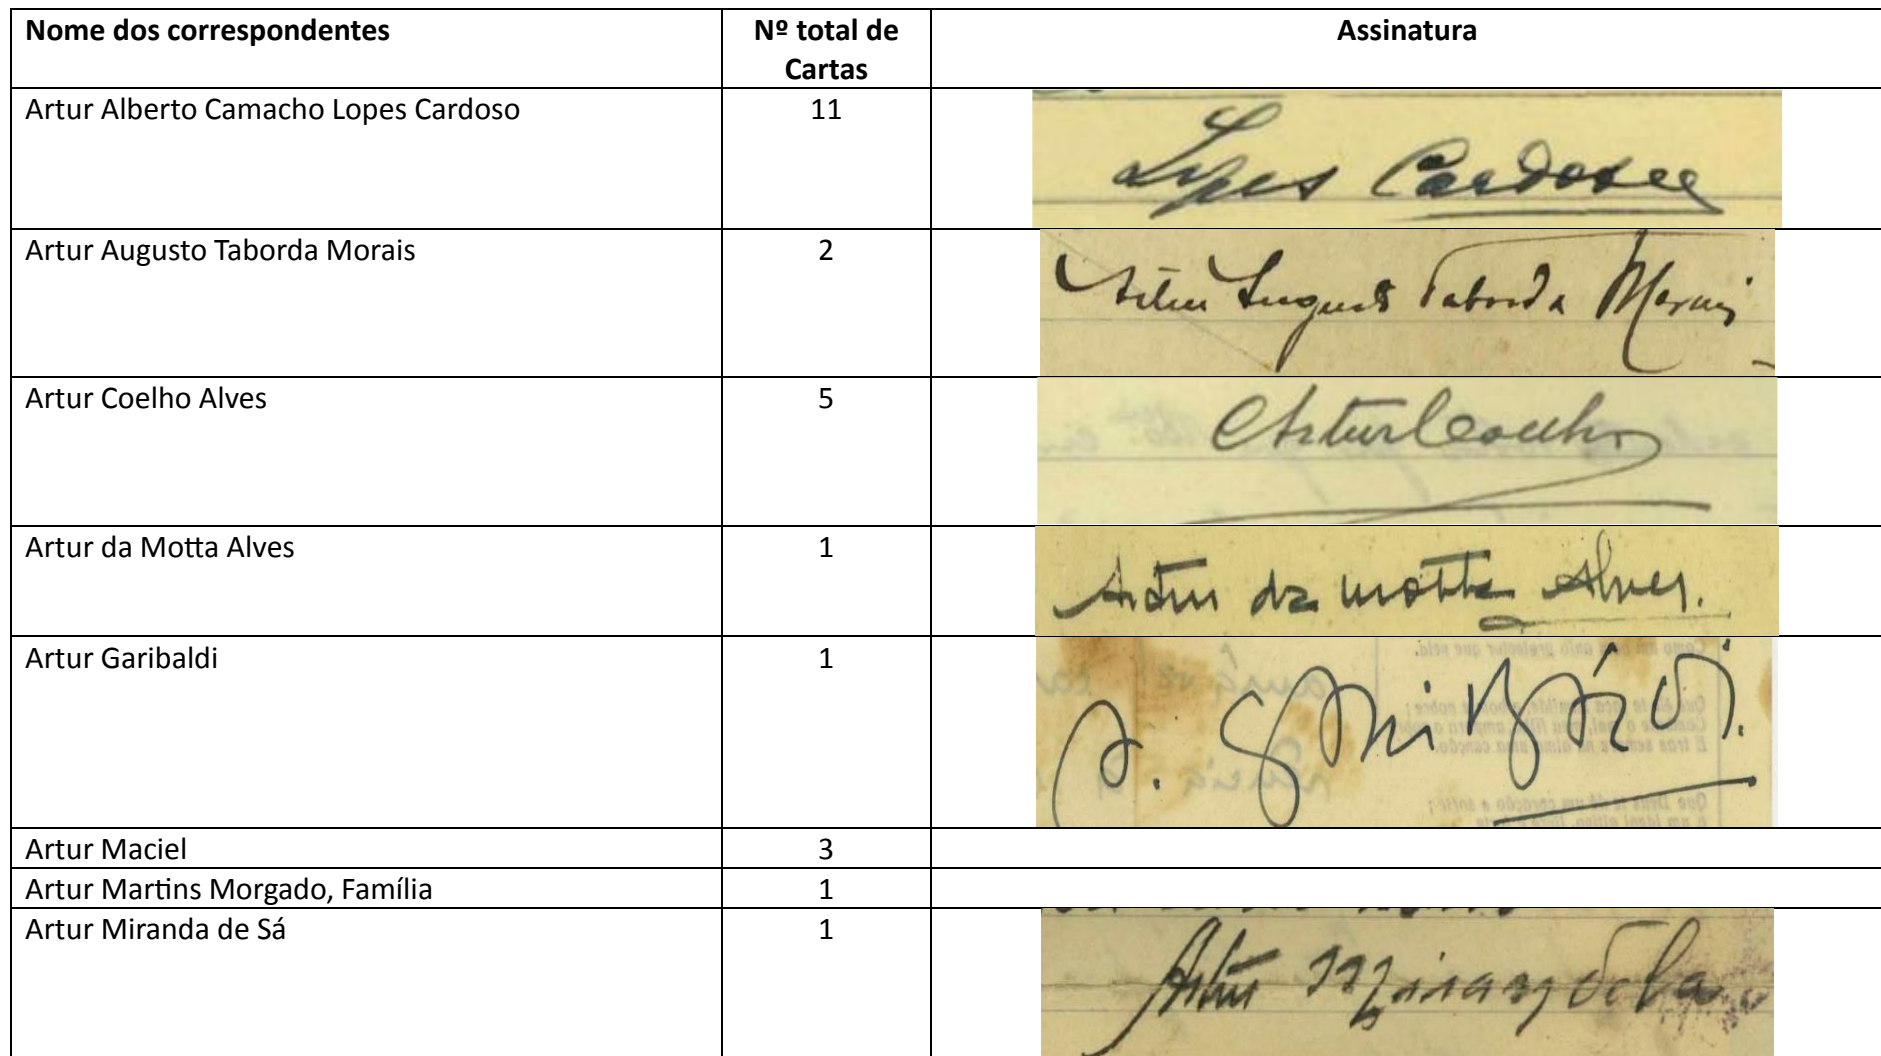 Nome dos correspondentes
Nº total de
Cartas
Assinatura
Artur Alberto Camacho Lopes Cardoso
11
Lopes Cardoso
Artur Augusto Taborda Morais
2
Artur Augusto Taborda Morais
Artur Coelho Alves
5
Artur Coelho
Artur da Motta Alves
1
Artur da Motta Alves.
Artur Garibaldi
1
A. Garibáldi.
Artur Maciel
3
Artur Martins Morgado, Família
1
Artur Miranda de Sá
1
Artur Miranda